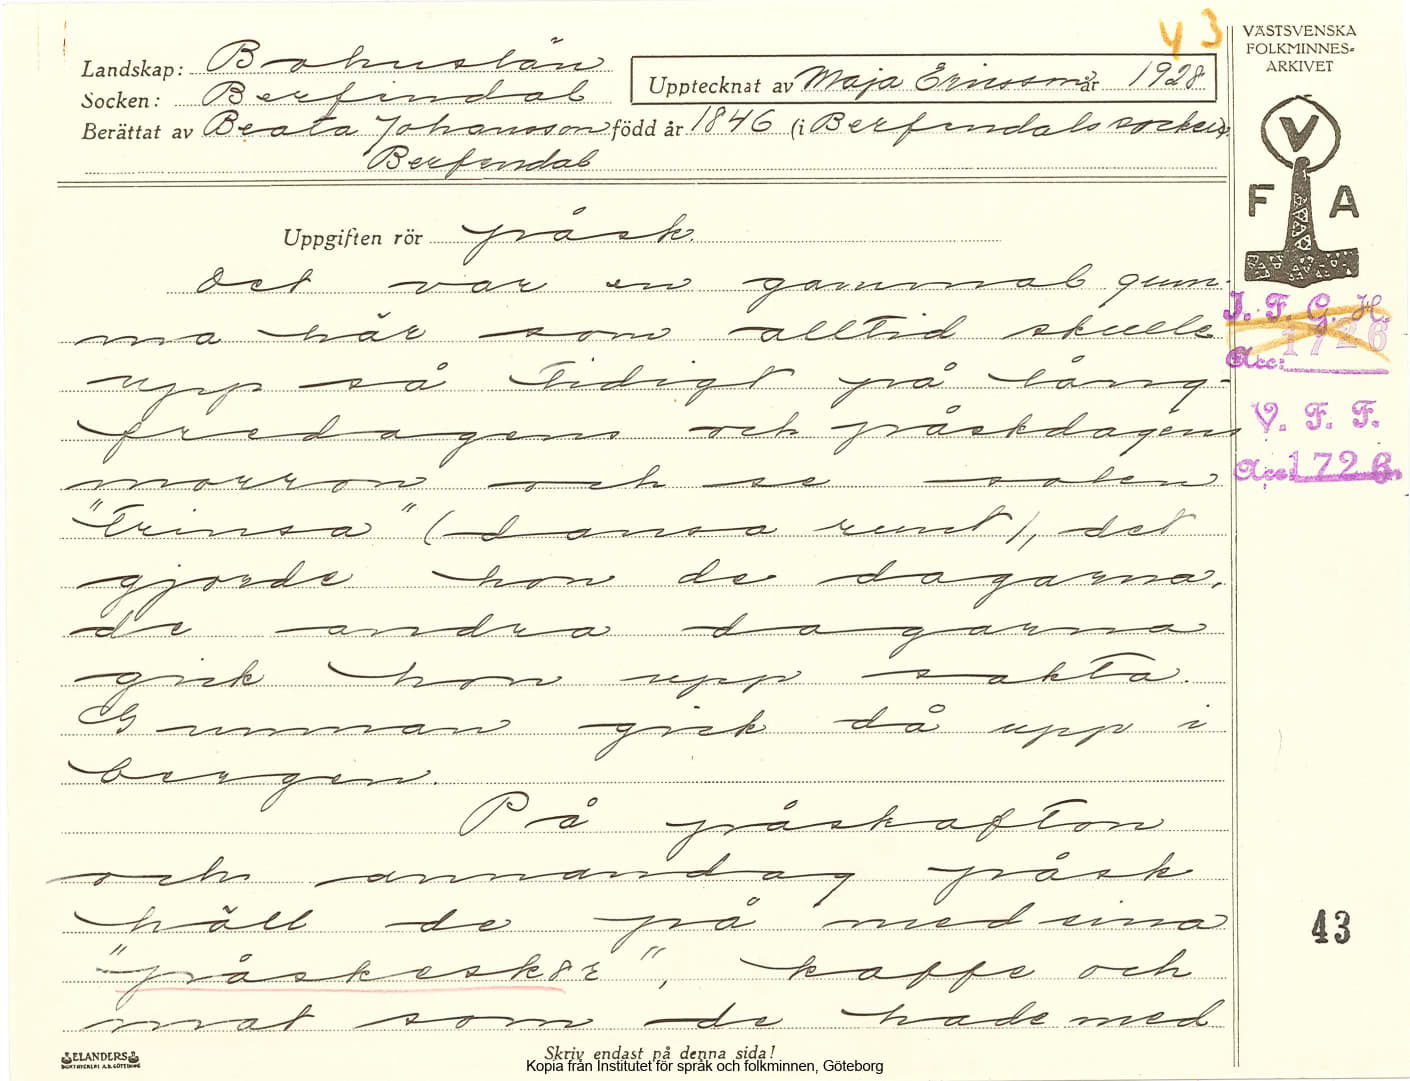 43
VÄSTSVENSKA
FOLKMINNES-
ARKIVET
Landskap: Bohuslän
Upptecknat av Maja Ericsson år 1928
Socken: Berfendal
Berättat av Beata Johansson född år 1846 (i Berfendals socken).
Berfendal
V
F A
Uppgiften rör påsk.
Det var en gammal gum-
ma här som alltid skulle
upp så tidigt på lång-
fredagens och påskdagens
morron och se solen
"trinsa" (dansa runt), det
gjorde hon de dagarna,
de andra dagarna
gick hon upp sakta.
Gumman gick då upp i
bergen.
På påskafton
och annandag påsk
häll de på med sina
"påskeskär", kaffe och
mat som de hade med
I. F. G. H.
Acc: 1726
V. F. F.
Acc: 1726
43
ELANDERS
BOKTRYCKERI A.B. GÖTEBORG
Skriv endast på denna sida!
Kopia från Institutet för språk och folkminnen, Göteborg